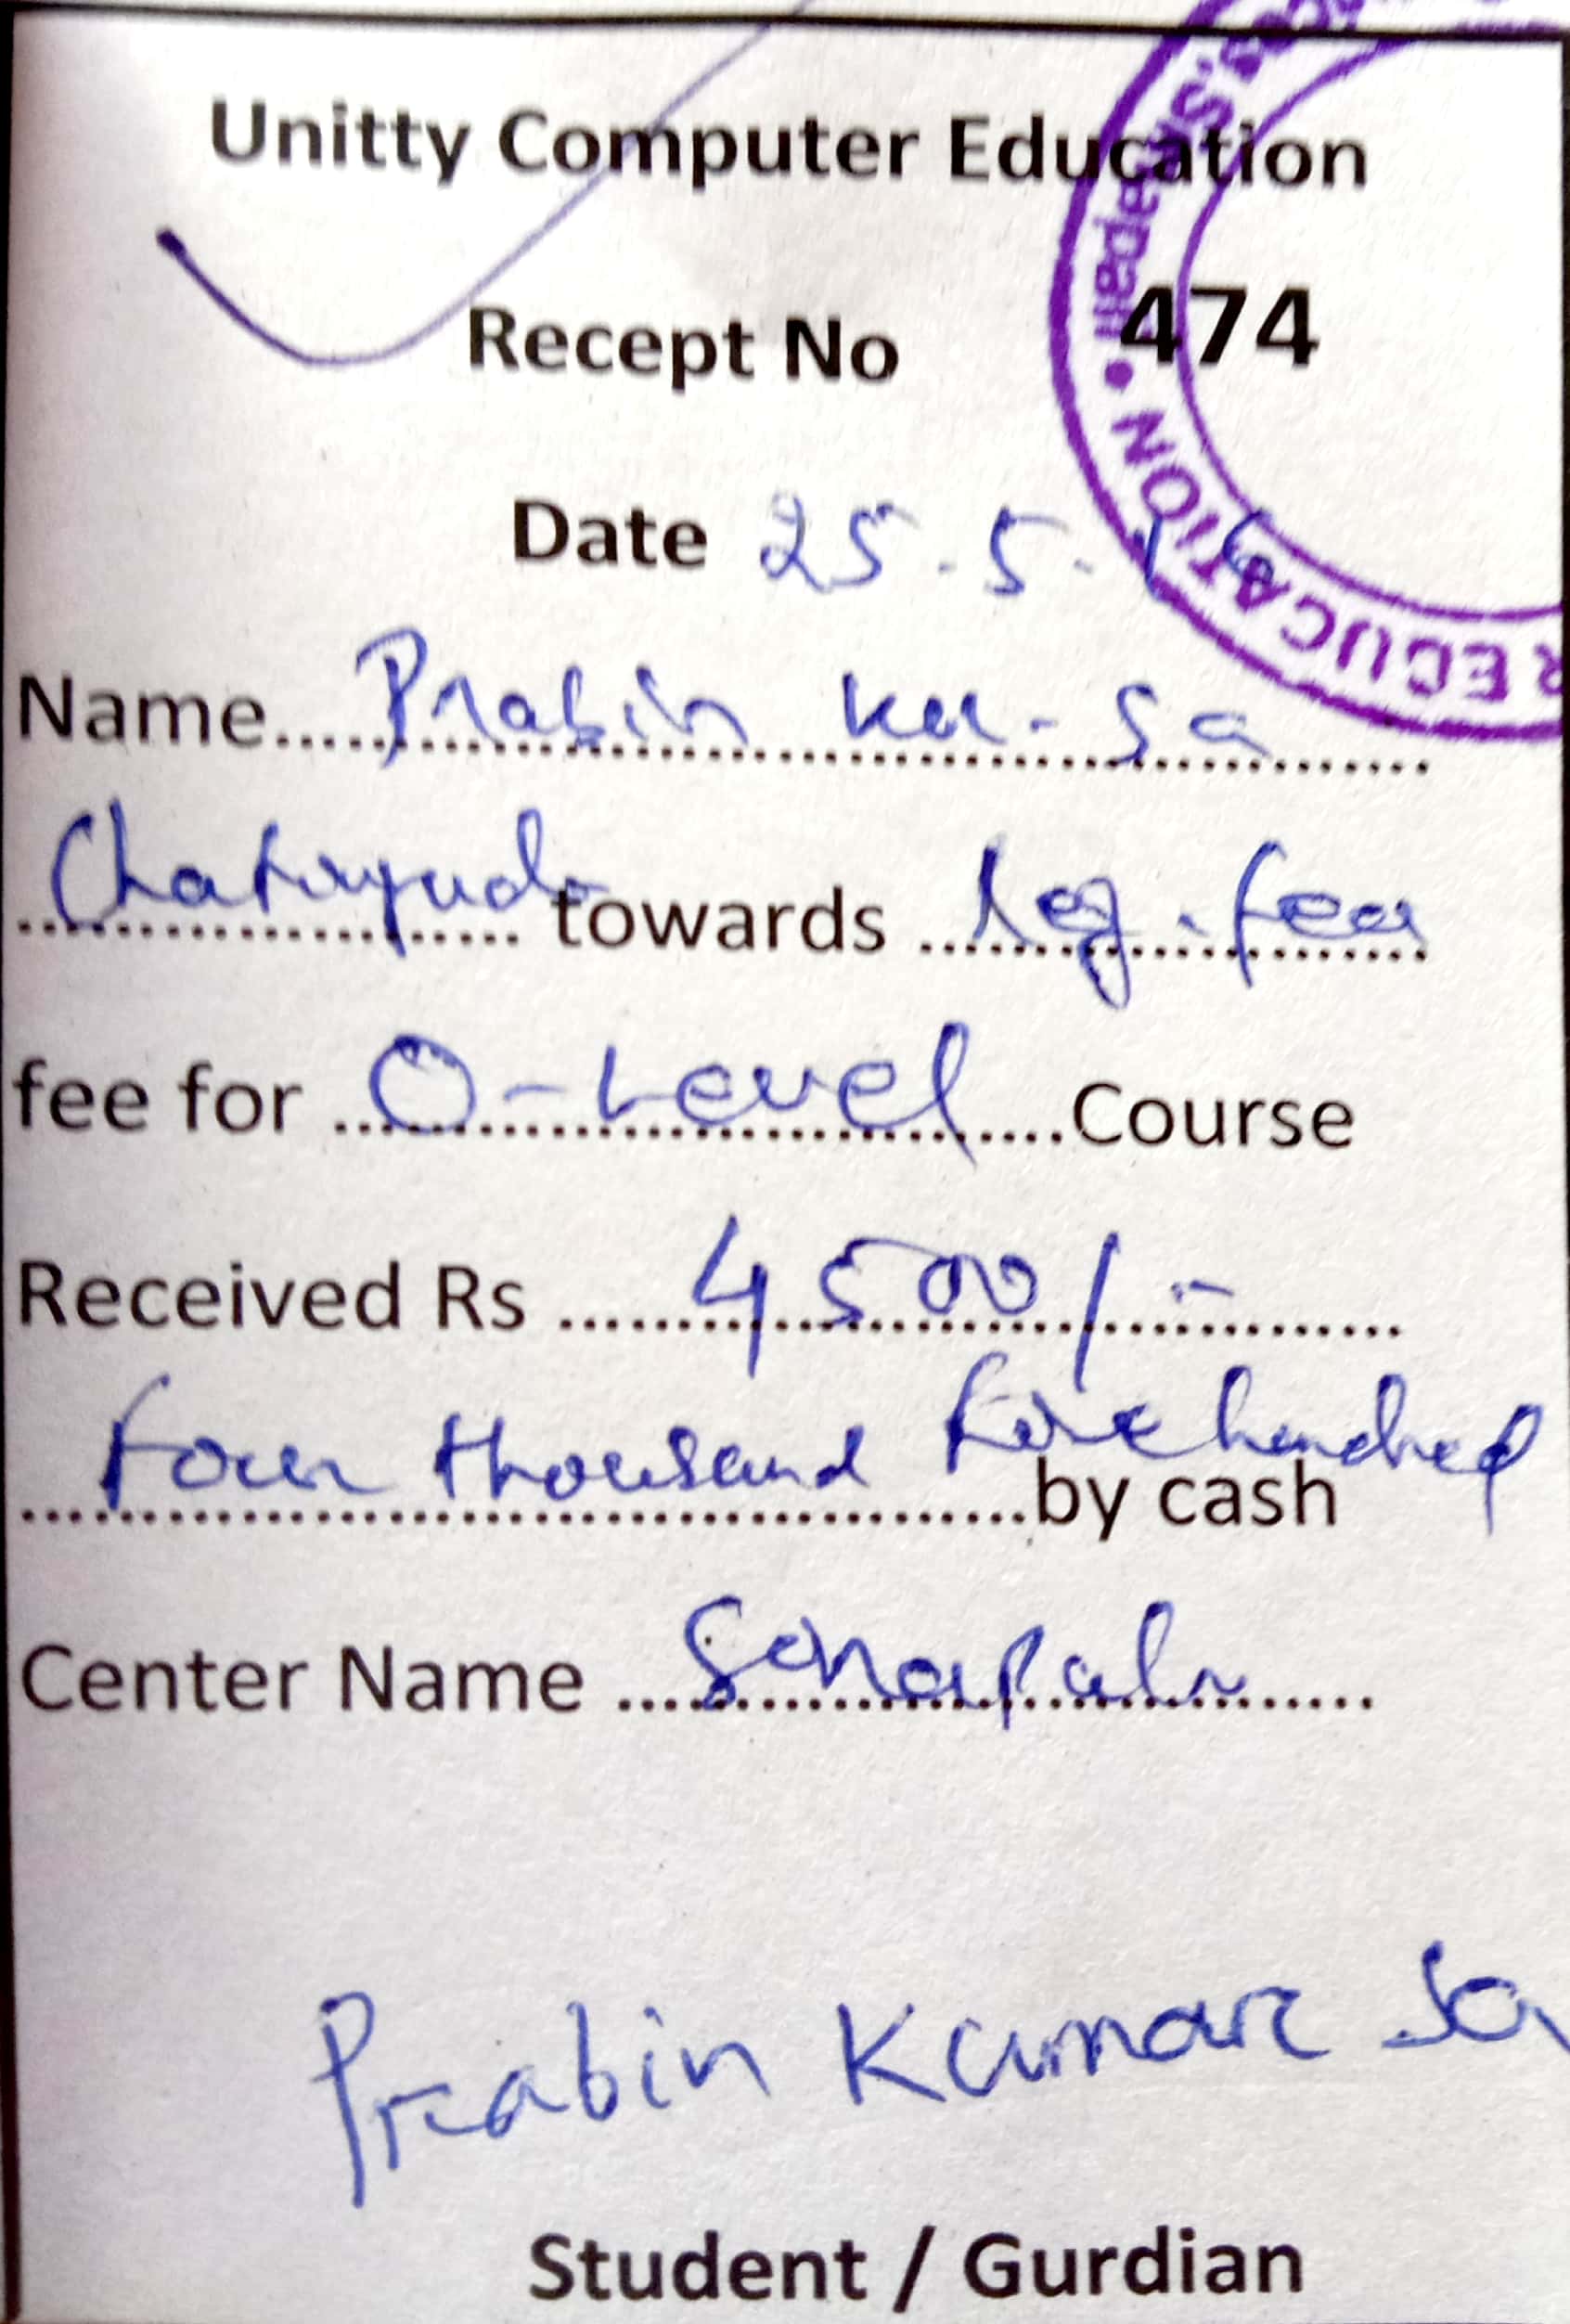 Unitty Computer Education
Recept No 474
Date 25.5.16
Name.....Prabin ku. Sa
towards reg. fees
fee for ...O-Level....Course
Received Rs ...4500/-
Four thousand Five hundred
by cash
Center Name ...Senapali
Prabin Kumar Sa
Student / Gurdian
RECUCATION